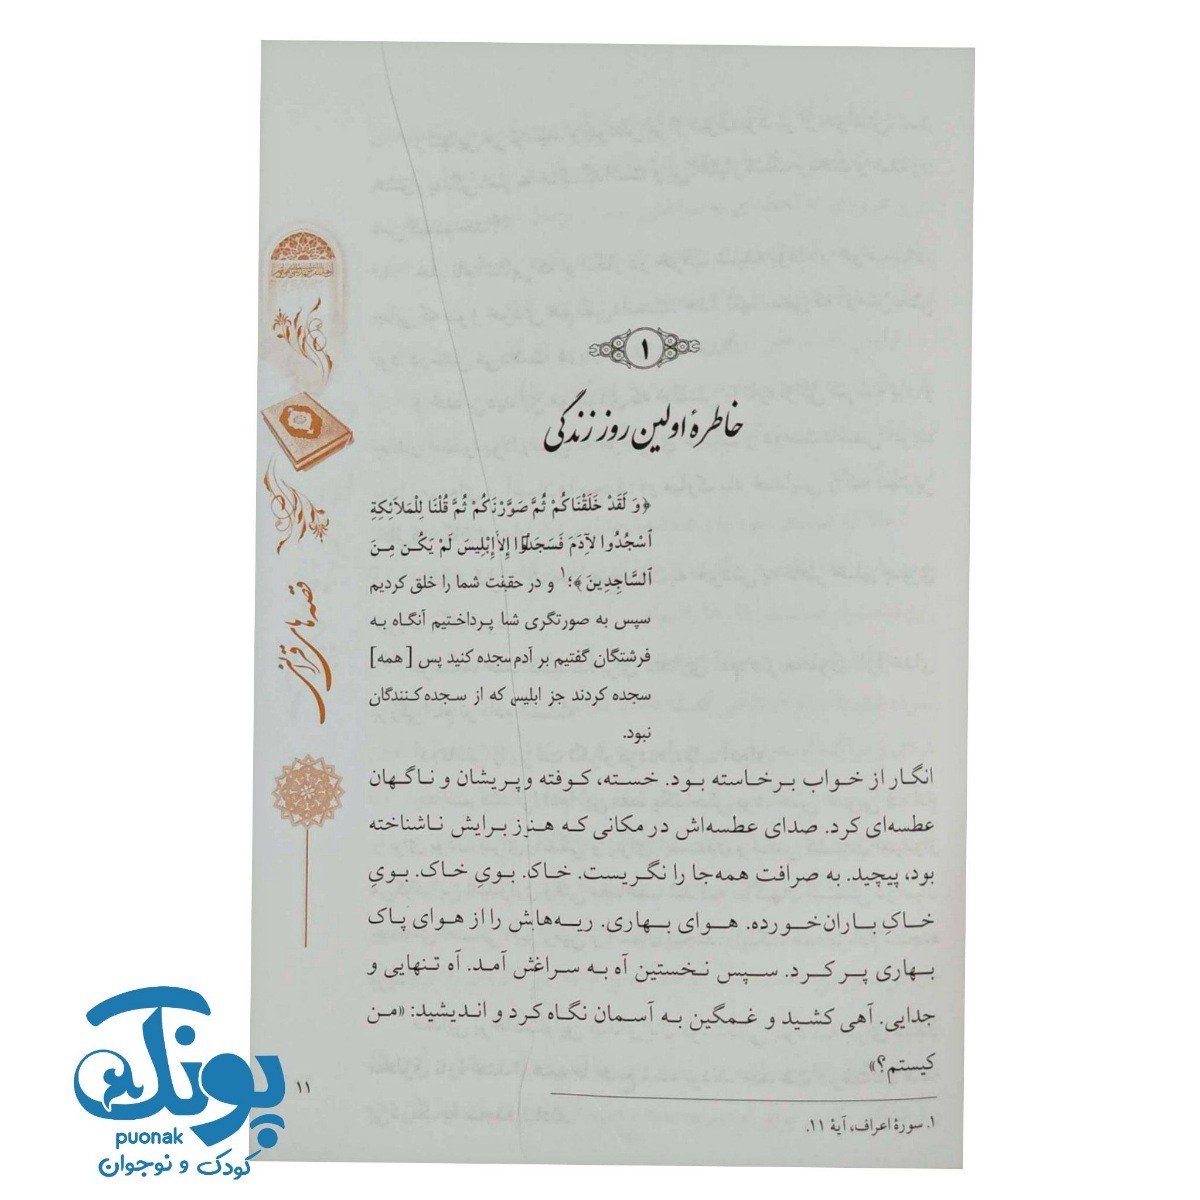 ۱
خاطرهٔ اولین روز زندگی
﴿وَ لَقَدْ خَلَقْنَاکُمْ ثُمَّ صَوَّرْنَکُمْ ثُمَّ قُلْنَا لِلْمَلاَئِکَةِ
اَسْجُدُوا لاِدَمَ فَسَجَدُوٓا إِلاَّ إِبْلِیسَ لَمْ یَکُنْ مِنَ
اَلسَّاجِدِینَ﴾؛۱ و در حقیقت شما را خلق کردیم
سپس به صورتگری شما پرداختیم آنگاه به
فرشتگان گفتیم بر آدم سجده کنید پس [همه]
سجده کردند جز ابلیس که از سجده‌کنندگان
نبود.
انگار از خواب برخاسته بود. خسته، کوفته و پریشان و ناگهان
عطسه‌ای کرد. صدای عطسه‌اش در مکانی که هنوز برایش ناشناخته
بود، پیچید. به صرافت همه‌جا را نگریست. خاک. بویِ خاک. بویِ
خاکِ باران‌خورده. هوای بهاری. ریه‌هاش را از هوای پاک
بهاری پر کرد. سپس نخستین آه به سراغش آمد. آه تنهایی و
جدایی. آهی کشید و غمگین به آسمان نگاه کرد و اندیشید: «من
کیستم؟»
۱. سورهٔ اعراف، آیهٔ ۱۱.
۱۱
قصه‌های قرآنی
پونک
puonak
کودک و نوجوان